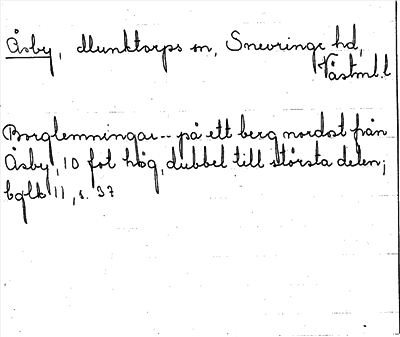 Åsby, Munktorps sn, Snevringe hd,
Västml.l
Borglemningar -- på ett berg nordost från
Åsby, 10 fot hög, dubbel till största delen;
bglk 11, s. 37